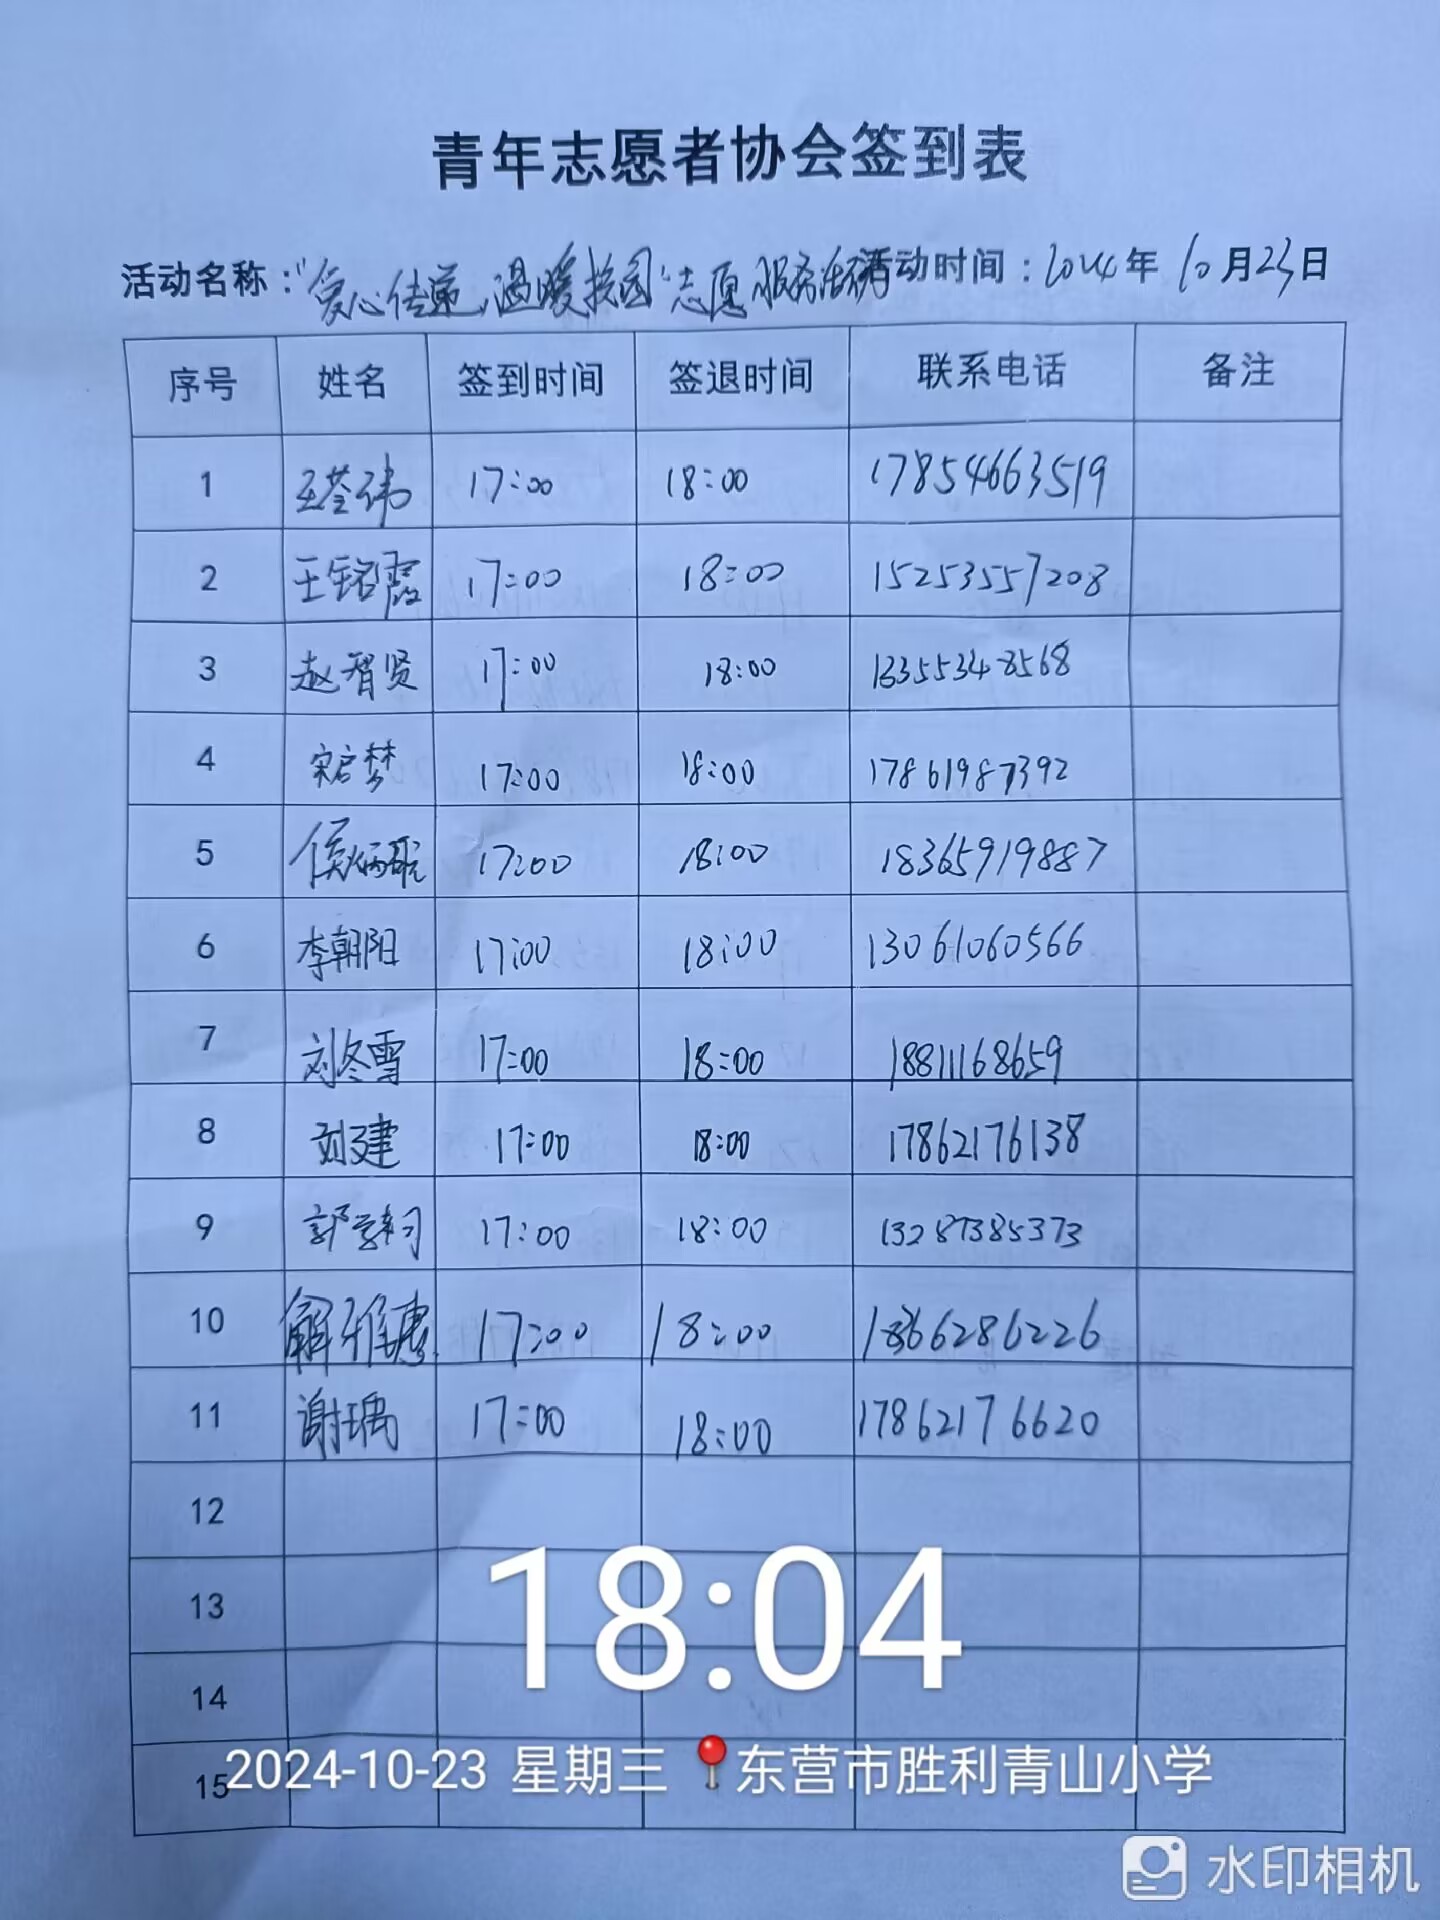 青年志愿者协会签到表
活动名称："爱心传递,温暖校园"志愿服务活动 活动时间：2024年10月23日
序号 姓名 签到时间 签退时间 联系电话 备注
1 王荃玮 17:00 18:00 17854663519
2 王铭霞 17:00 18:00 15253557208
3 赵智贤 17:00 18:00 13355348568
4 宋启梦 17:00 18:00 17861987392
5 侯 17:00 18:00 18365919887
6 李朝阳 17:00 18:00 13061060566
7 刘冬雪 17:00 18:00 18811168659
8 刘建 17:00 18:00 17862176138
9 郭 17:00 18:00 13287385373
10 解雅惠 17:00 18:00 18366286226
11 谢瑀 17:00 18:00 17862176620
12
13
18:04
14
15
2024-10-23 星期三 东营市胜利青山小学
水印相机